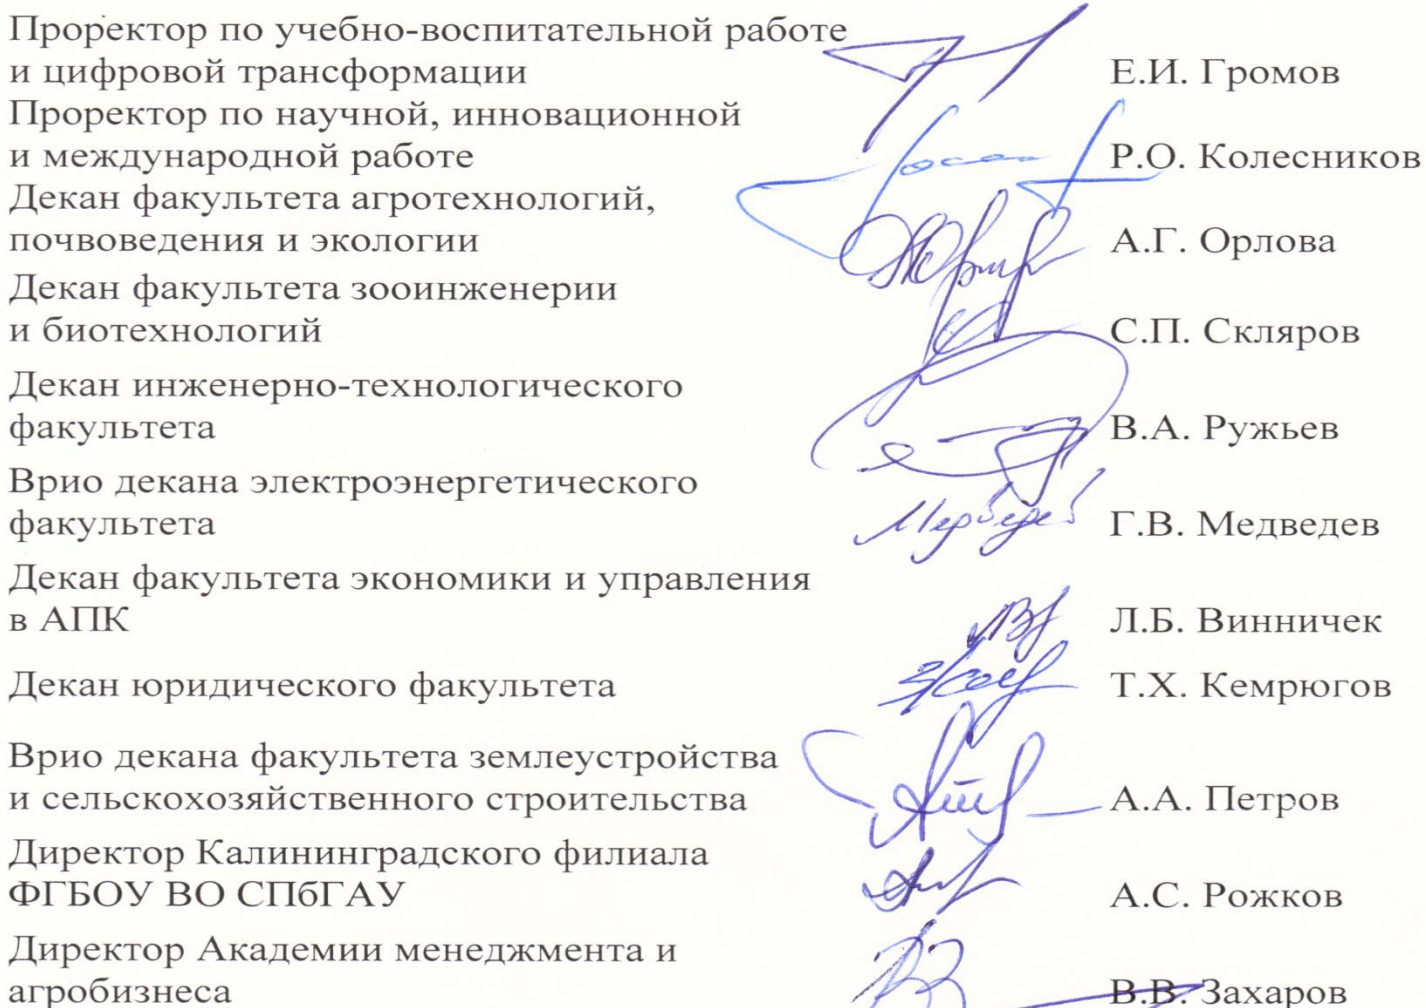 Проректор по учебно-воспитательной работе
и цифровой трансформации Е.И. Громов
Проректор по научной, инновационной
и международной работе Р.О. Колесников
Декан факультета агротехнологий,
почвоведения и экологии А.Г. Орлова
Декан факультета зооинженерии
и биотехнологий С.П. Скляров
Декан инженерно-технологического
факультета В.А. Ружьев
Врио декана электроэнергетического
факультета Г.В. Медведев
Декан факультета экономики и управления
в АПК Л.Б. Винничек
Декан юридического факультета Т.Х. Кемрюгов
Врио декана факультета землеустройства
и сельскохозяйственного строительства А.А. Петров
Директор Калининградского филиала
ФГБОУ ВО СПбГАУ А.С. Рожков
Директор Академии менеджмента и
агробизнеса В.В. Захаров